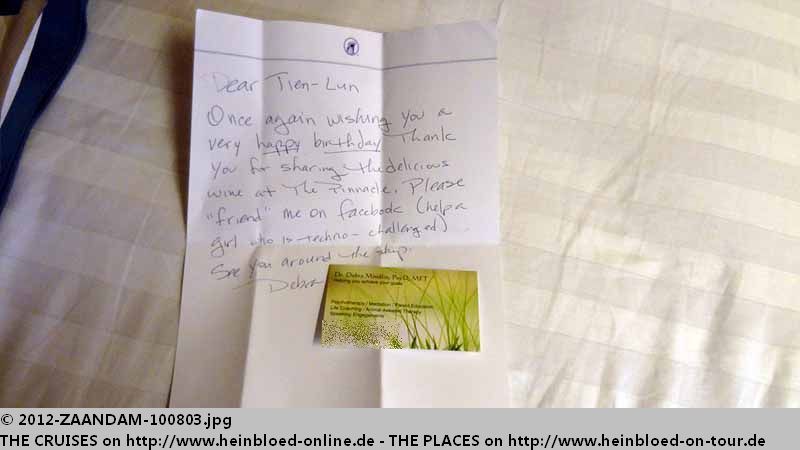 Dear Tien-Lun
Once again wishing you a
very happy birthday Thank
you for sharing the delicious
wine at The Pinnacle. Please
"friend" me on facebook (help a
girl who is techno-challenged)
See you around the ship.
Debra
Dr. Debra PsyD, MFT
Helping you achieve your goals
Psychotherapy / Mediation / Parent Education
Life Coaching - Animal Assisted Therapy
Speaking Engagements
© 2012-ZAANDAM-100803.jpg
THE CRUISES on http://www.heinbloed-online.de - THE PLACES on http://www.heinbloed-on-tour.de